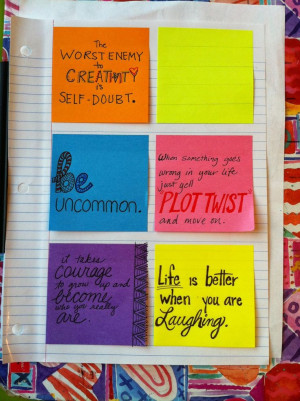 The
WORST ENEMY
to
CREATIVITY
is
SELF-DOUBT.
Be
uncommon.
When something goes
wrong in your life
just yell
PLOT TWIST
and move on.
it takes
courage
to grow up and
become
who you really
are.
Life is better
when you are
Laughing.